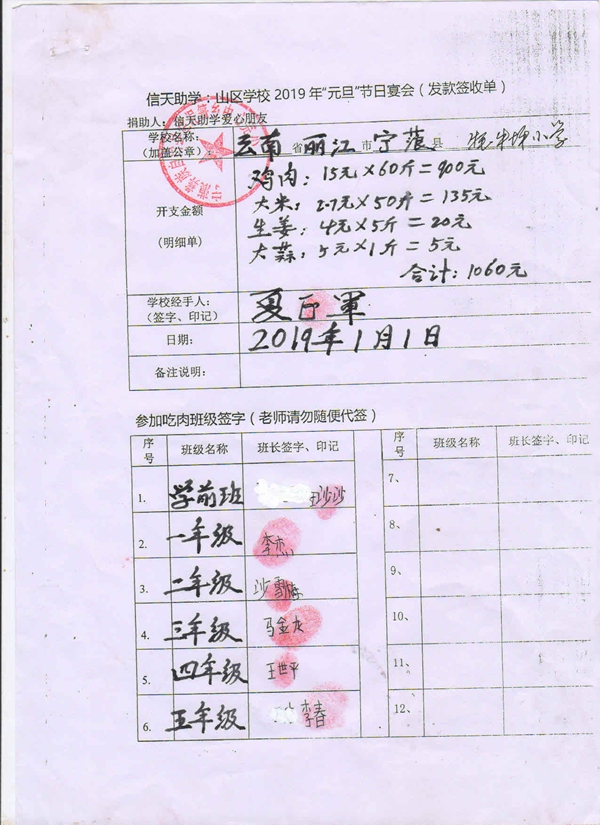 信天助学：山区学校2019年“元旦”节日宴会（发款签收单）
捐助人：信天助学爱心朋友
学校名称：
（加盖公章） 云南省丽江市宁蒗县 小学
开支金额
（明细单）
鸡肉：15元×60斤=900元
大米：2.7元×50斤=135元
生姜：4元×5斤=20元
大蒜：5元×1斤=5元
合计：1060元
学校经手人：
（签字、印记） 夏正军
日期： 2019年1月1日
备注说明：
参加吃肉班级签字（老师请勿随便代签）
序号 班级名称 班长签字、印记 序号 班级名称 班长签字、印记
1. 学前班 王沙沙 7、
2. 一年级 李杰 8、
3. 二年级 沙雪梅 9、
4. 三年级 马金龙 10、
5. 四年级 王世平 11、
6. 五年级 李春 12、